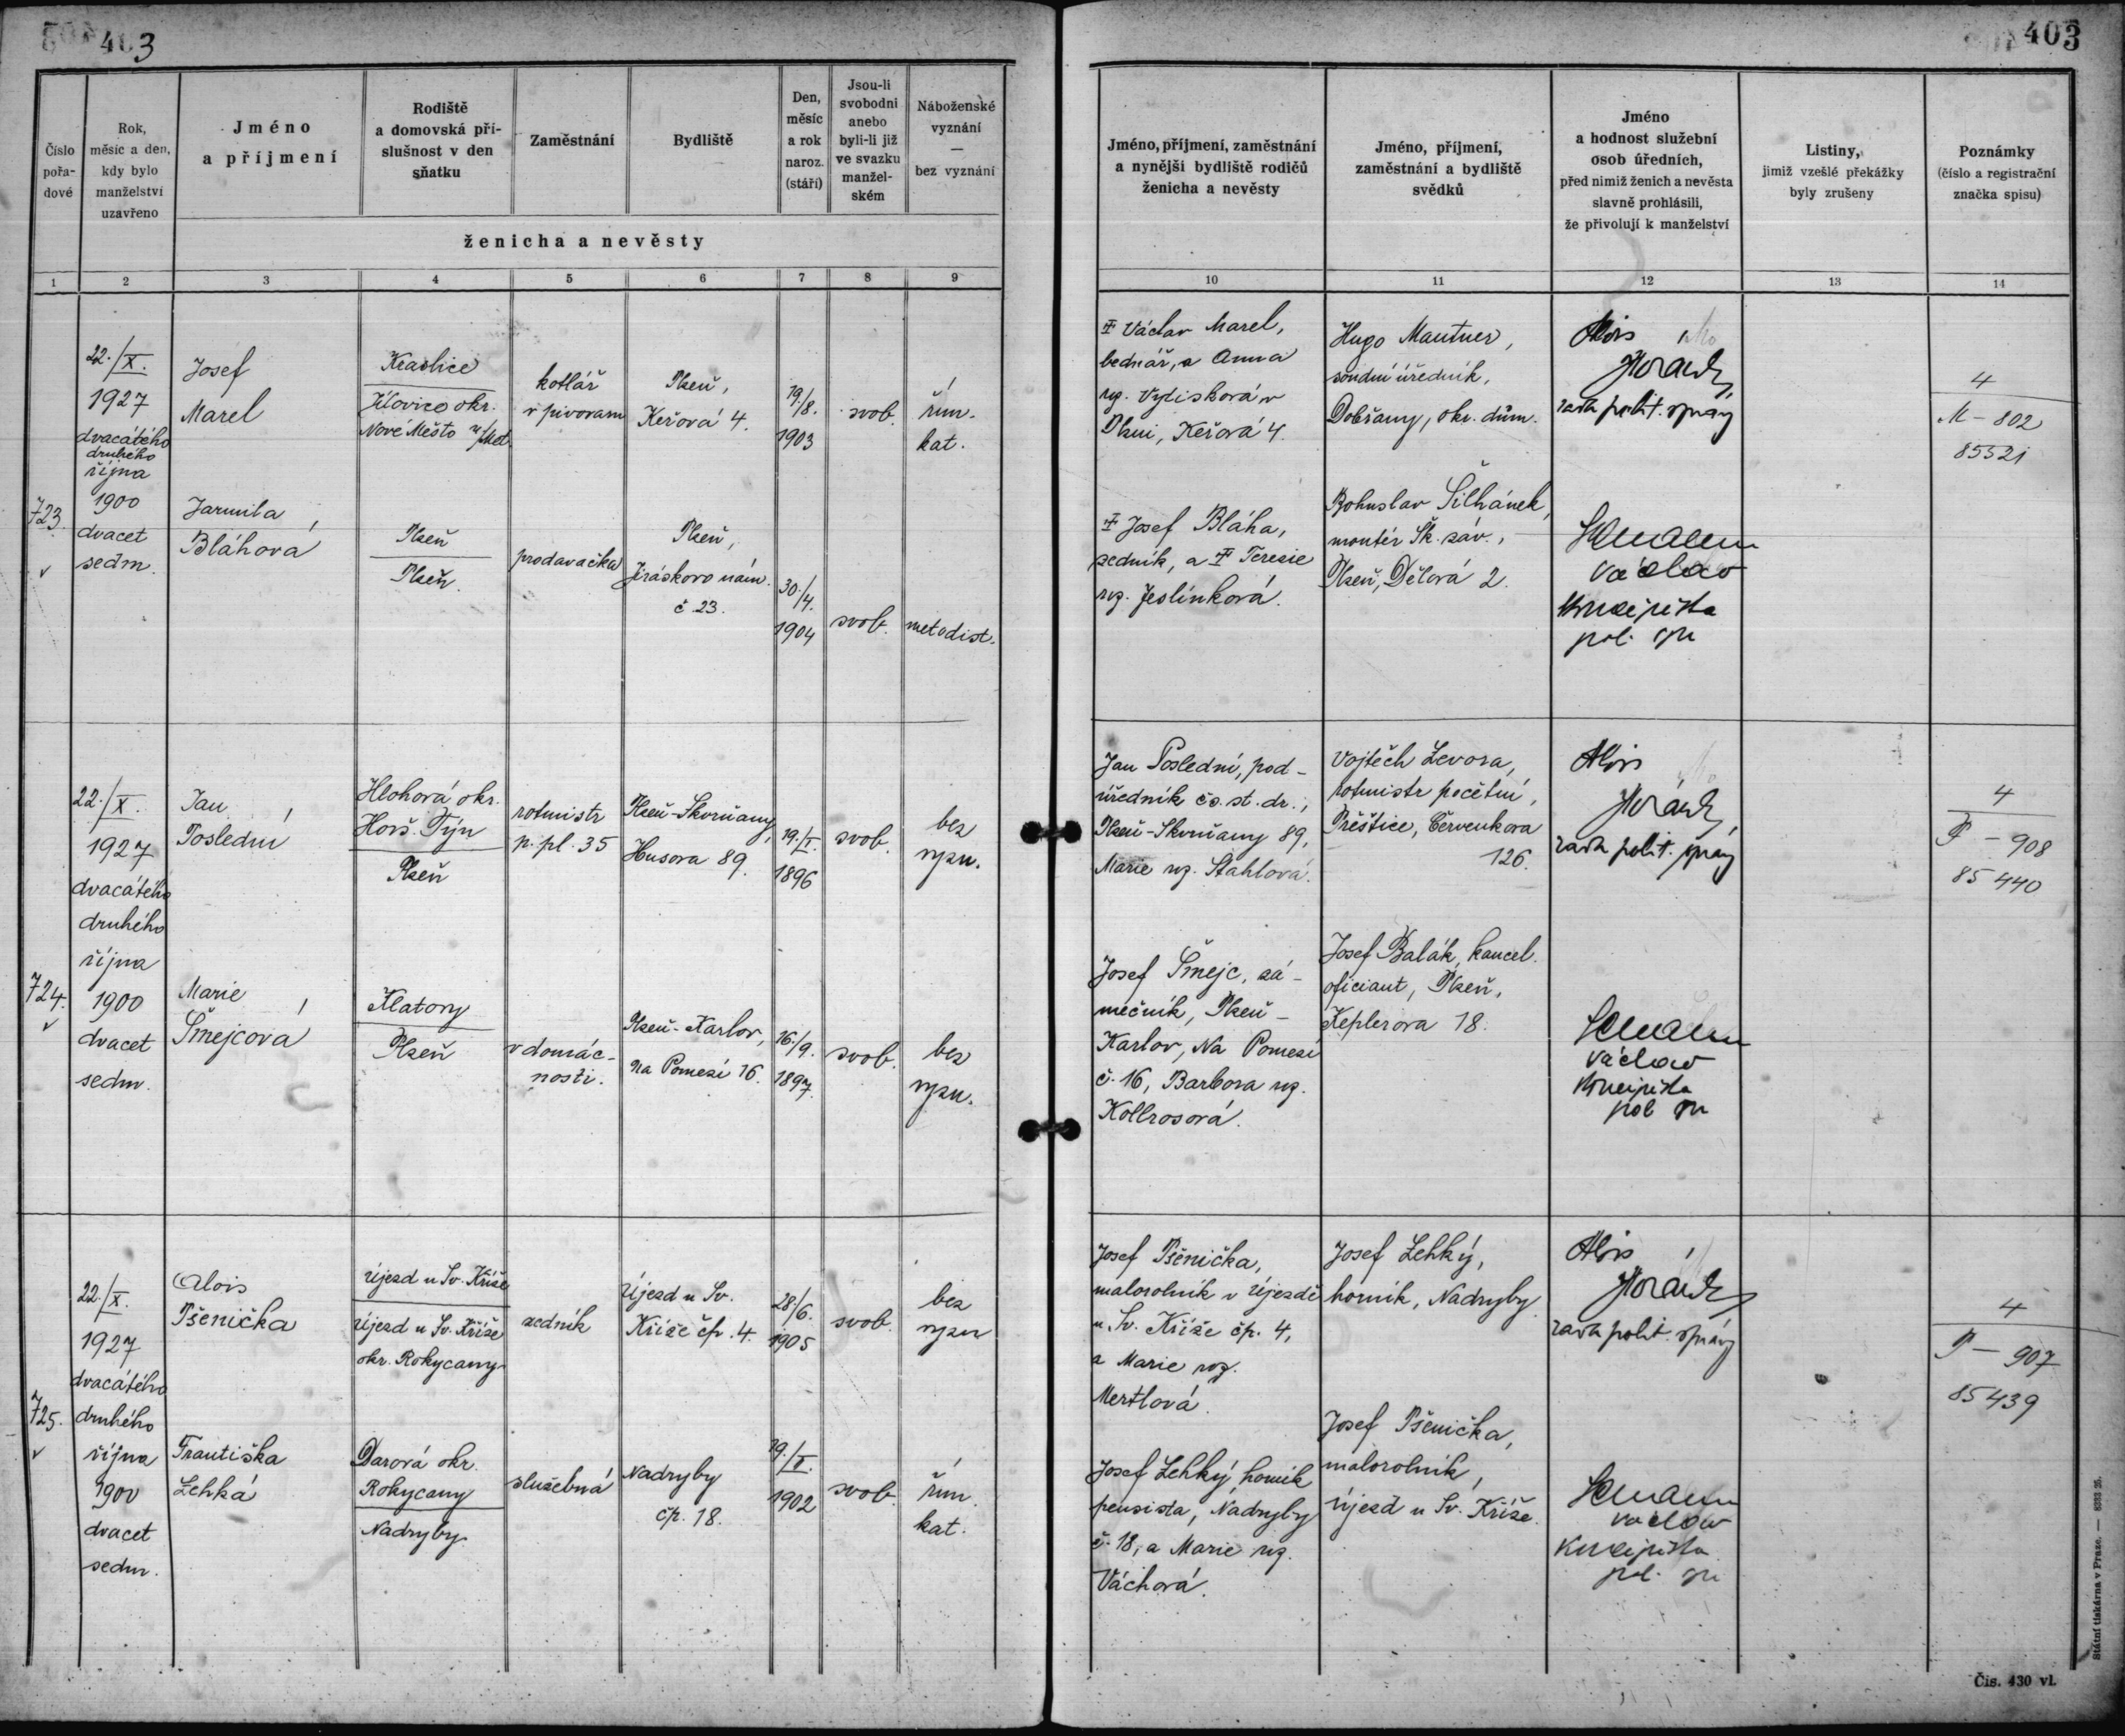 403
403
Číslo
pořa-
dové
Rok,
měsíc a den,
kdy bylo
manželství
uzavřeno
Jméno
a příjmení
Rodiště
a domovská pří-
slušnost v den
sňatku
Zaměstnání
Bydliště
Den,
měsíc
a rok
naroz.
(stáří)
Jsou-li
svobodni
anebo
byli-li již
ve svazku
manžel-
ském
Náboženské
vyznání
—
bez vyznání
ženicha a nevěsty
Jméno, příjmení, zaměstnání
a nynější bydliště rodičů
ženicha a nevěsty
Jméno, příjmení,
zaměstnání a bydliště
svědků
Jméno
a hodnost služební
osob úředních,
před nimiž ženich a nevěsta
slavně prohlásili,
že přivolují k manželství
Listiny,
jimiž vzešlé překážky
byly zrušeny
Poznámky
(číslo a registrační
značka spisu)
1 2 3 4 5 6 7 8 9 10 11 12 13 14
723.
22./X.
1927
dvacátého
druhého
října
1900
dvacet
sedm.
Josef
Marel
Kraslice
Jílovice okr.
Nové Město n/Met.
kotlář
v pivovaru
Plzeň,
Keřová 4.
19./8.
1903
svob.
řím.
kat.
Jarmila
Bláhová
Plzeň
Plzeň.
prodavačka
Plzeň,
Jiráskovo nám.
č. 23.
30./4.
1904
svob.
metodist.
Václav Marel,
bednář, a Anna
roz.
Plzni, Keřová 4.
Josef Bláha,
zedník, a Terezie
roz. Jeslínková.
Hugo Mautner,
soudní úředník,
Dobřany, okr. dům.
Bohuslav Šilhánek,
montér Šk. záv.,
Plzeň, Dělová 2.
Alois
Horák
rada polit. správy
Václav
pol. spr
4
M - 802
85521
724.
22./X.
1927
dvacátého
druhého
října
1900
dvacet
sedm.
Jan
Poslední
Hlohová okr.
Horš. Týn
Plzeň
rotmistr
p. pl. 35
Plzeň-Skvrňany,
Husova 89.
19./I.
1896
svob.
bez
vyzn.
Marie
Šmejcová
Klatovy
Plzeň
v domác-
nosti.
Plzeň-Karlov,
Na Pomezí 16.
16./9.
1897.
svob.
bez
vyzn.
Jan Poslední, pod-
úředník čs. st. dr.,
Plzeň-Skvrňany 89,
Marie roz. Stahlová.
Josef Šmejc, zá-
mečník, Plzeň-
Karlov, Na Pomezí
č. 16, Barbora roz.
Kollrosová.
Vojtěch Levora,
rotmistr početní,
Přeštice, Červenkova
126.
Josef Balák, kancel.
oficiant, Plzeň,
Keplerova 18.
Alois
Horák
rada polit. správy
Václav
pol
4
P - 908
85440
725.
22./X.
1927
dvacátého
druhého
října
1900
dvacet
sedm.
Alois
Pšenička
Újezd u Sv. Kříže
Újezd u Sv. Kříže
okr. Rokycany
zedník
Újezd u Sv.
Kříže čp. 4.
28./6.
1905
svob.
bez
vyzn
Františka
Lehká
Darová okr.
Rokycany
Nadryby
služebná
Nadryby
čp. 18.
19./X.
1902
svob.
řím.
kat.
Josef Pšenička,
malorolník v Újezdě
u Sv. Kříže čp. 4,
a Marie roz.
Mertlová.
Josef Lehký, horník
pensista, Nadryby
č. 18, a Marie roz.
Váchová.
Josef Lehký,
horník, Nadryby.
Josef Pšenička,
malorolník,
Újezd u Sv. Kříže.
Alois
Horák
rada polit. správy
Václav
pol.
4
P - 907
85439
Státní tiskárna v Praze. — 6333 26.
Čís. 430 vl.